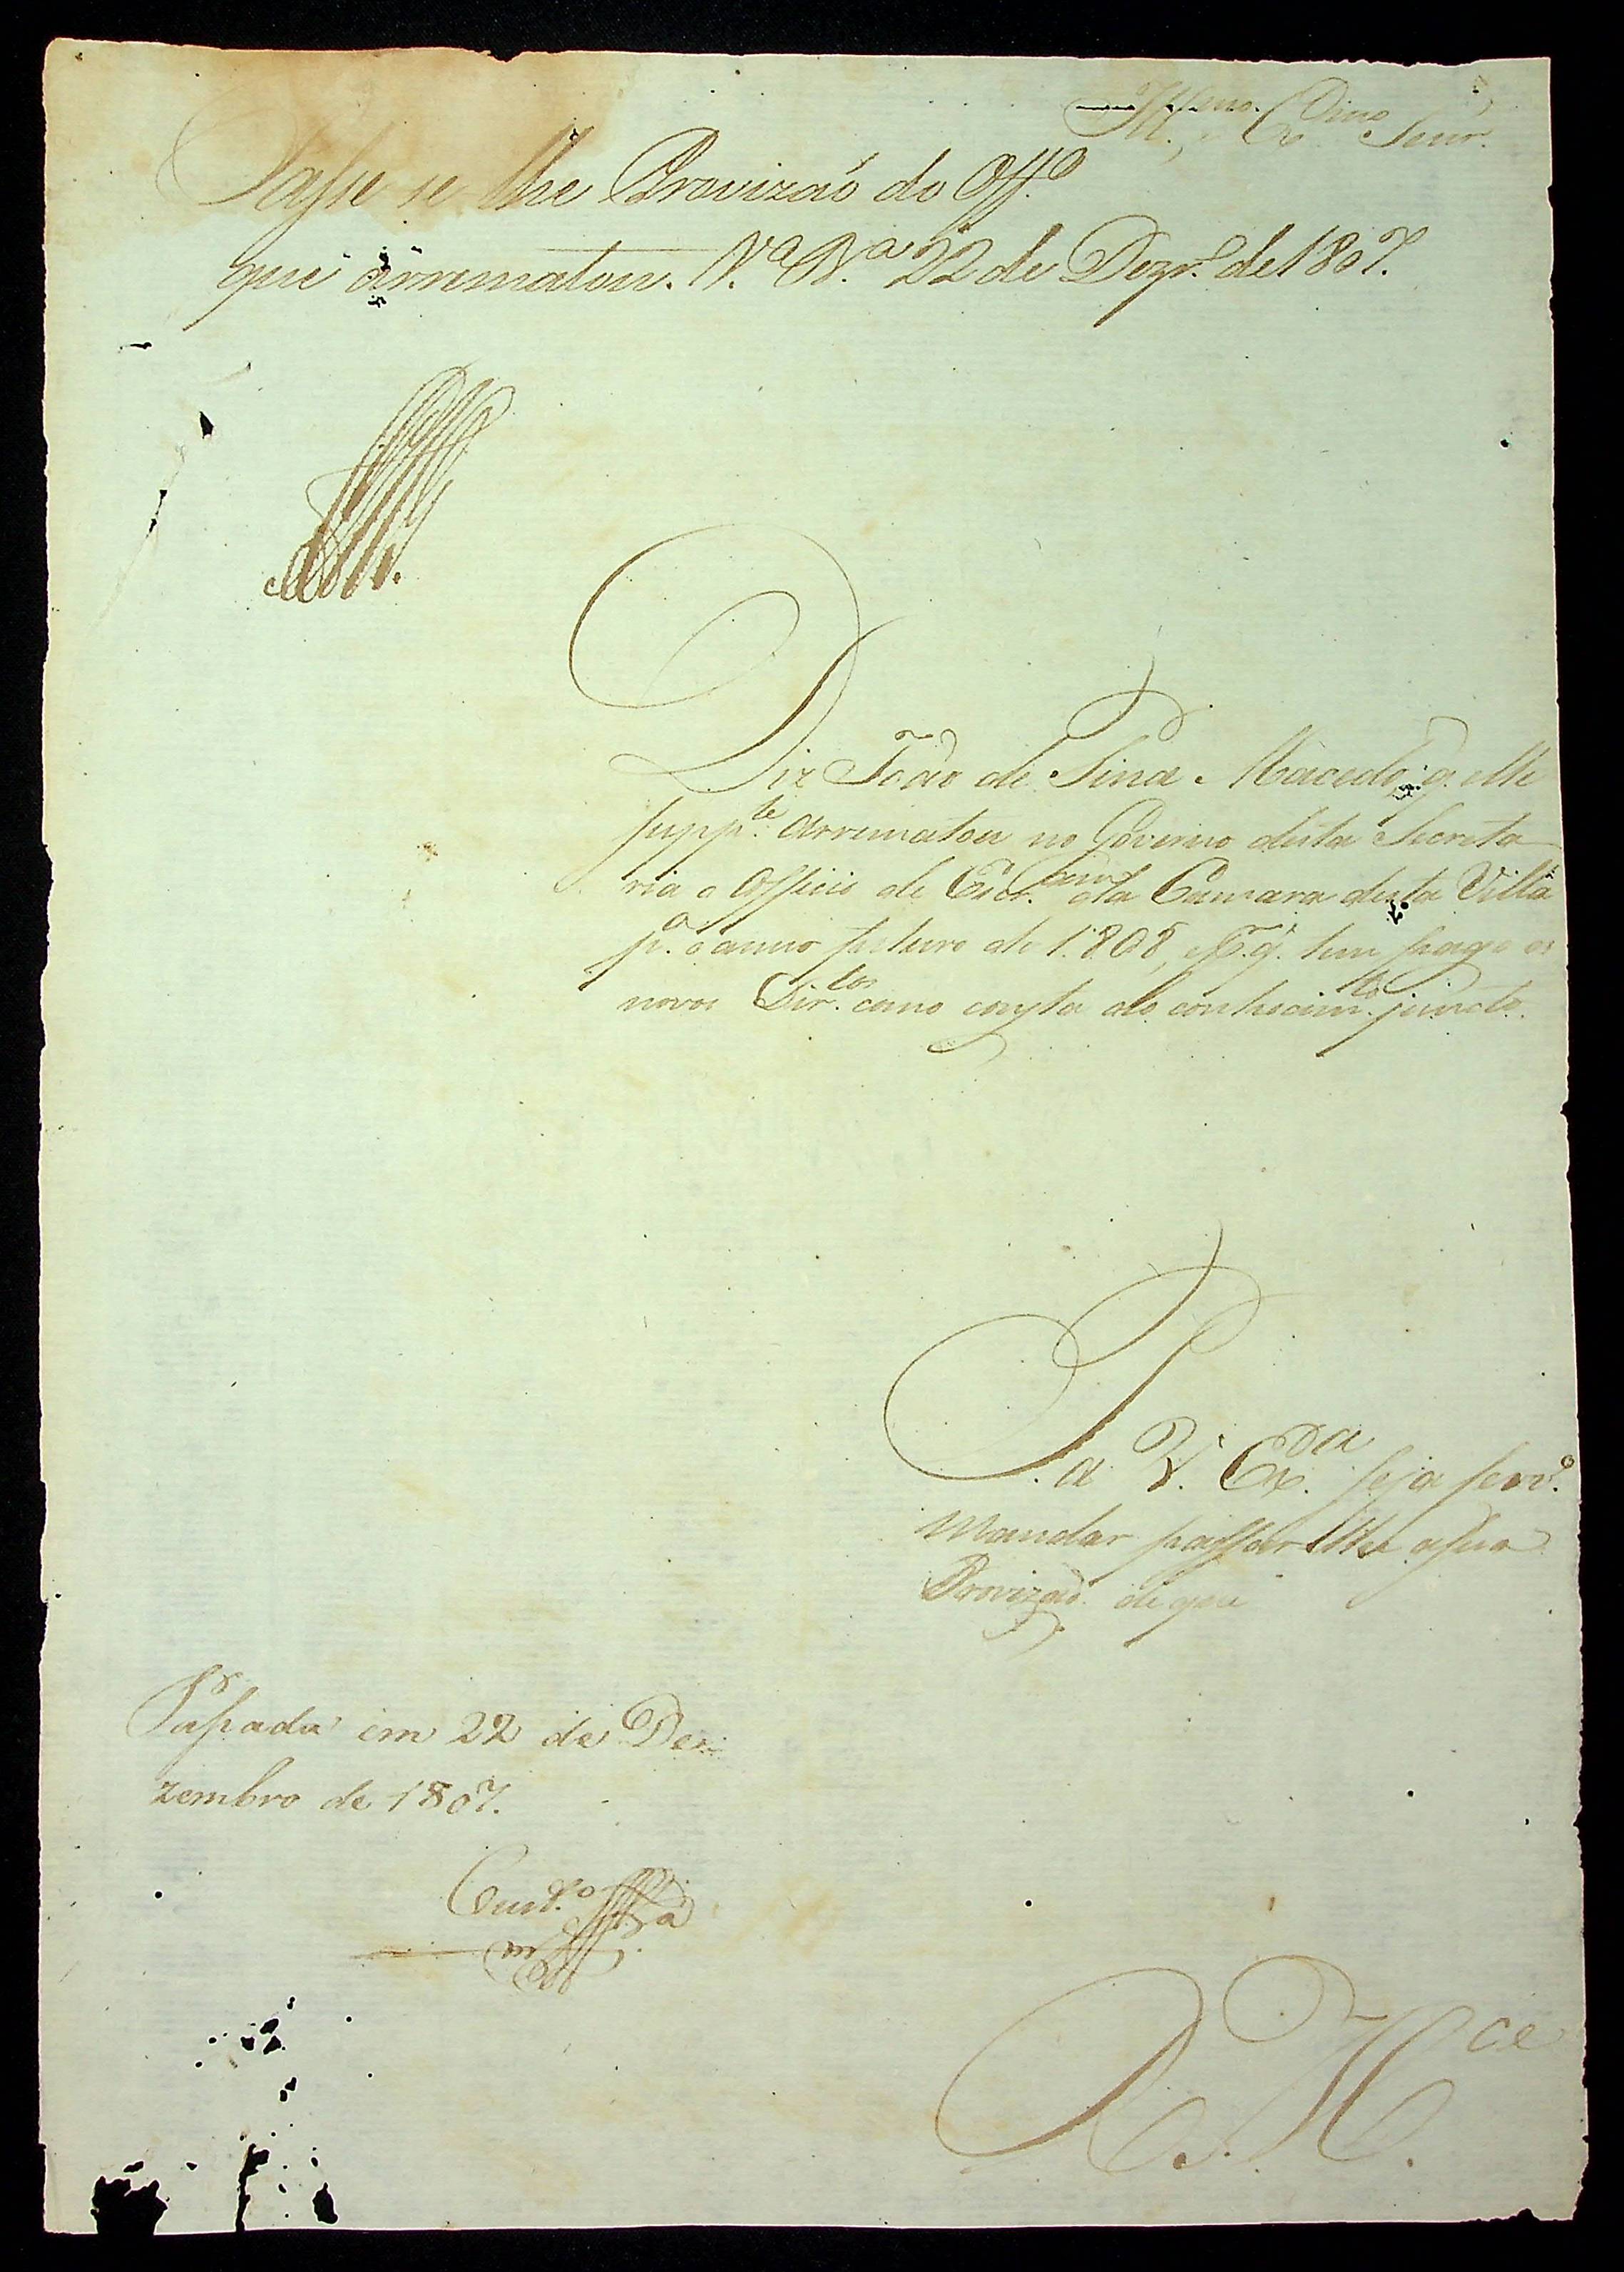 Illmo. Exmo Senr.
Passe se lhe Provizaõ do Offo.
que arrematou. Va. Ra. 22 de Dezro. de 1807.
Diz João de Pina Macedo, q. elle
suppte. arrematou no Governo desta Secreta
ria o Officio de Escram. da Camara desta Villa
pa. o anno futuro de 1808, e p.q. tem pago os
novos Dirtos. como consta do conhecimto. juncto.
P. a V. Exa. seja servo.
mandar passar lhe a sua
Provizaõ de que
Passada em 22 de De
zembro de 1807.
R. Mce.